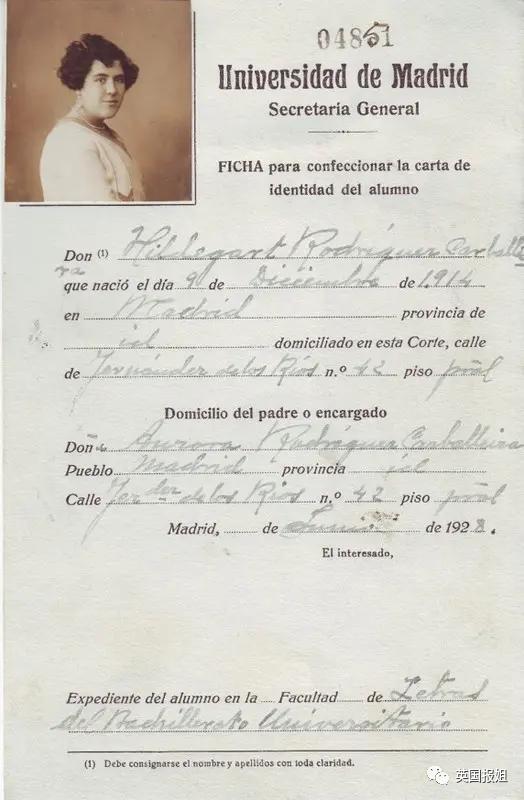 04851
Universidad de Madrid
Secretaría General
FICHA para confeccionar la carta de
identidad del alumno
Don (1) Hildegart Rodríguez Carballei
ra
que nació el día 9 de Diciembre de 1.914
en Madrid provincia de
id domiciliado en esta Corte, calle
de Fernández de los Ríos n.º 42 piso pñal
Domicilio del padre o encargado
Doña Aurora Rodríguez Carballeira
Pueblo Madrid provincia id
Calle Fer der de los Ríos n.º 42 piso pñal
Madrid, de Junio de 1928.
El interesado,
Expediente del alumno en la Facultad de Letras
del Bachillerato Universitario
(1) Debe consignarse el nombre y apellidos con toda claridad.
英国报姐